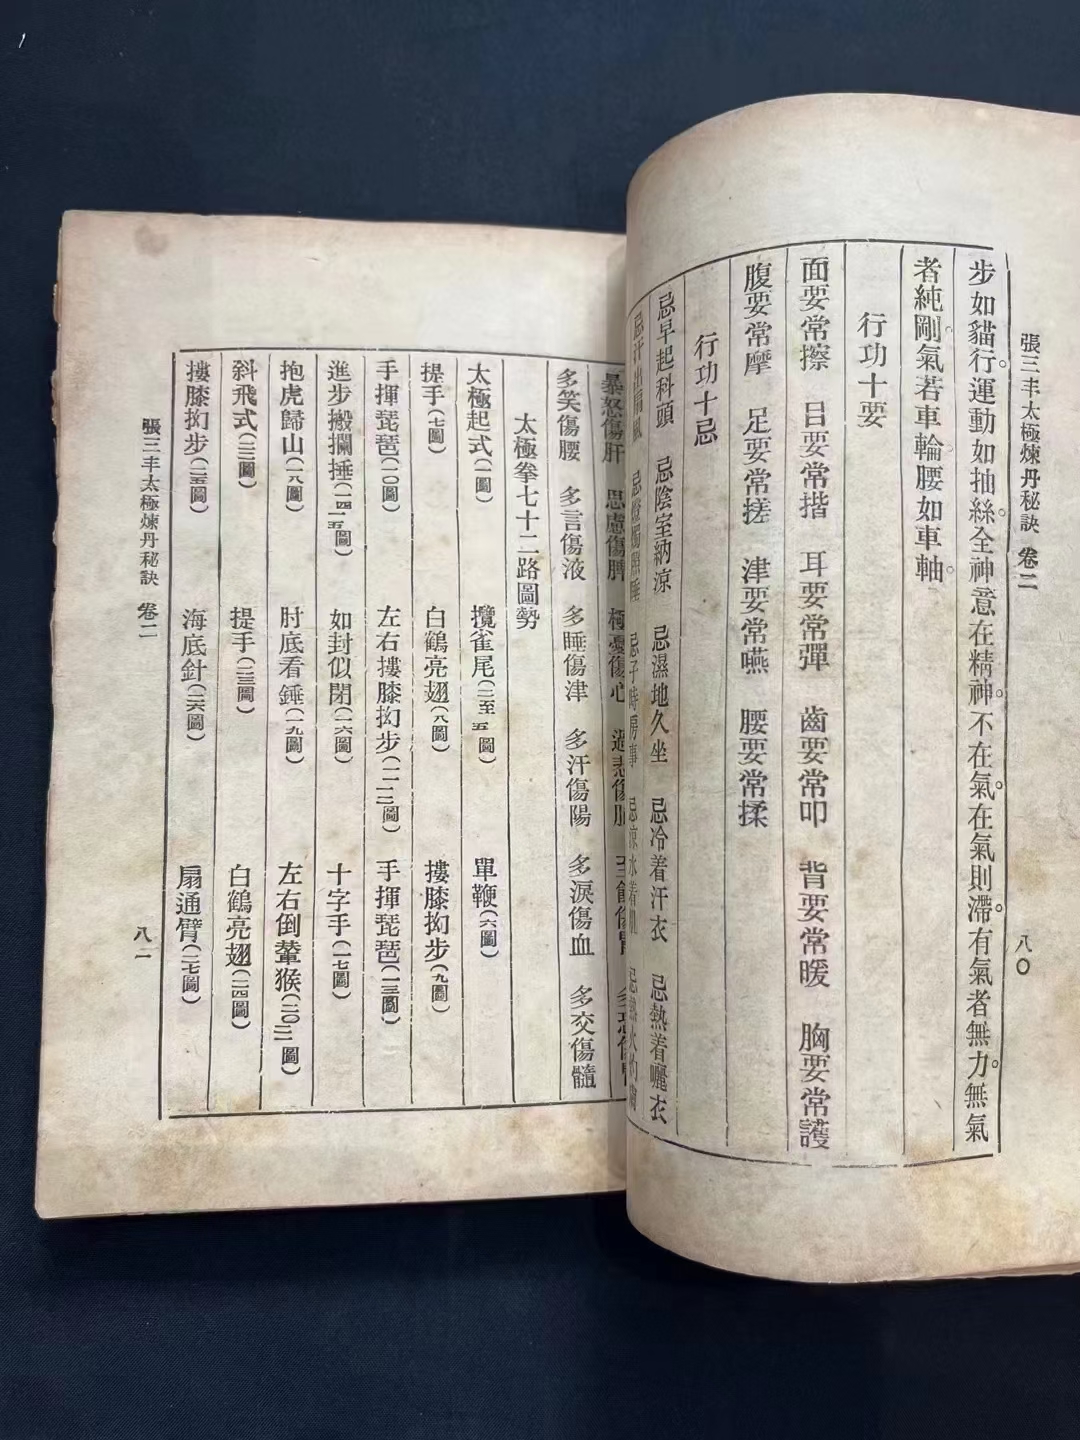 張三丰太極煉丹秘訣 卷二 八〇
步如貓行。運動如抽絲。全神意在精神。不在氣。在氣則滯。有氣者無力。無氣
者純剛。氣若車輪。腰如車軸。
行功十要
面要常擦 目要常揩 耳要常彈 齒要常叩 背要常暖 胸要常護
腹要常摩 足要常搓 津要常嚥 腰要常揉
行功十忌
忌早起科頭 忌陰室納涼 忌濕地久坐 忌冷着汗衣 忌熱着曬衣
忌汗出扇風 忌燈燭照睡 忌子時房事 忌涼水着肌 忌熱火灼膚
暴怒傷肝 思慮傷脾 極憂傷心 過悲傷肺
多笑傷腰 多言傷液 多睡傷津 多汗傷陽 多淚傷血 多交傷髓
太極拳七十二路圖勢
太極起式(一圖) 攬雀尾(二至五圖) 單鞭(六圖)
提手(七圖) 白鶴亮翅(八圖) 摟膝拗步(九圖)
手揮琵琶(一〇圖) 左右摟膝拗步(一一一二圖) 手揮琵琶(一三圖)
進步搬攔捶(一四一五圖) 如封似閉(一六圖) 十字手(一七圖)
抱虎歸山(一八圖) 肘底看錘(一九圖) 左右倒輦猴(二〇二一圖)
斜飛式(二二圖) 提手(二三圖) 白鶴亮翅(二四圖)
摟膝拗步(二五圖) 海底針(二六圖) 扇通臂(二七圖)
張三丰太極煉丹秘訣 卷二 八一